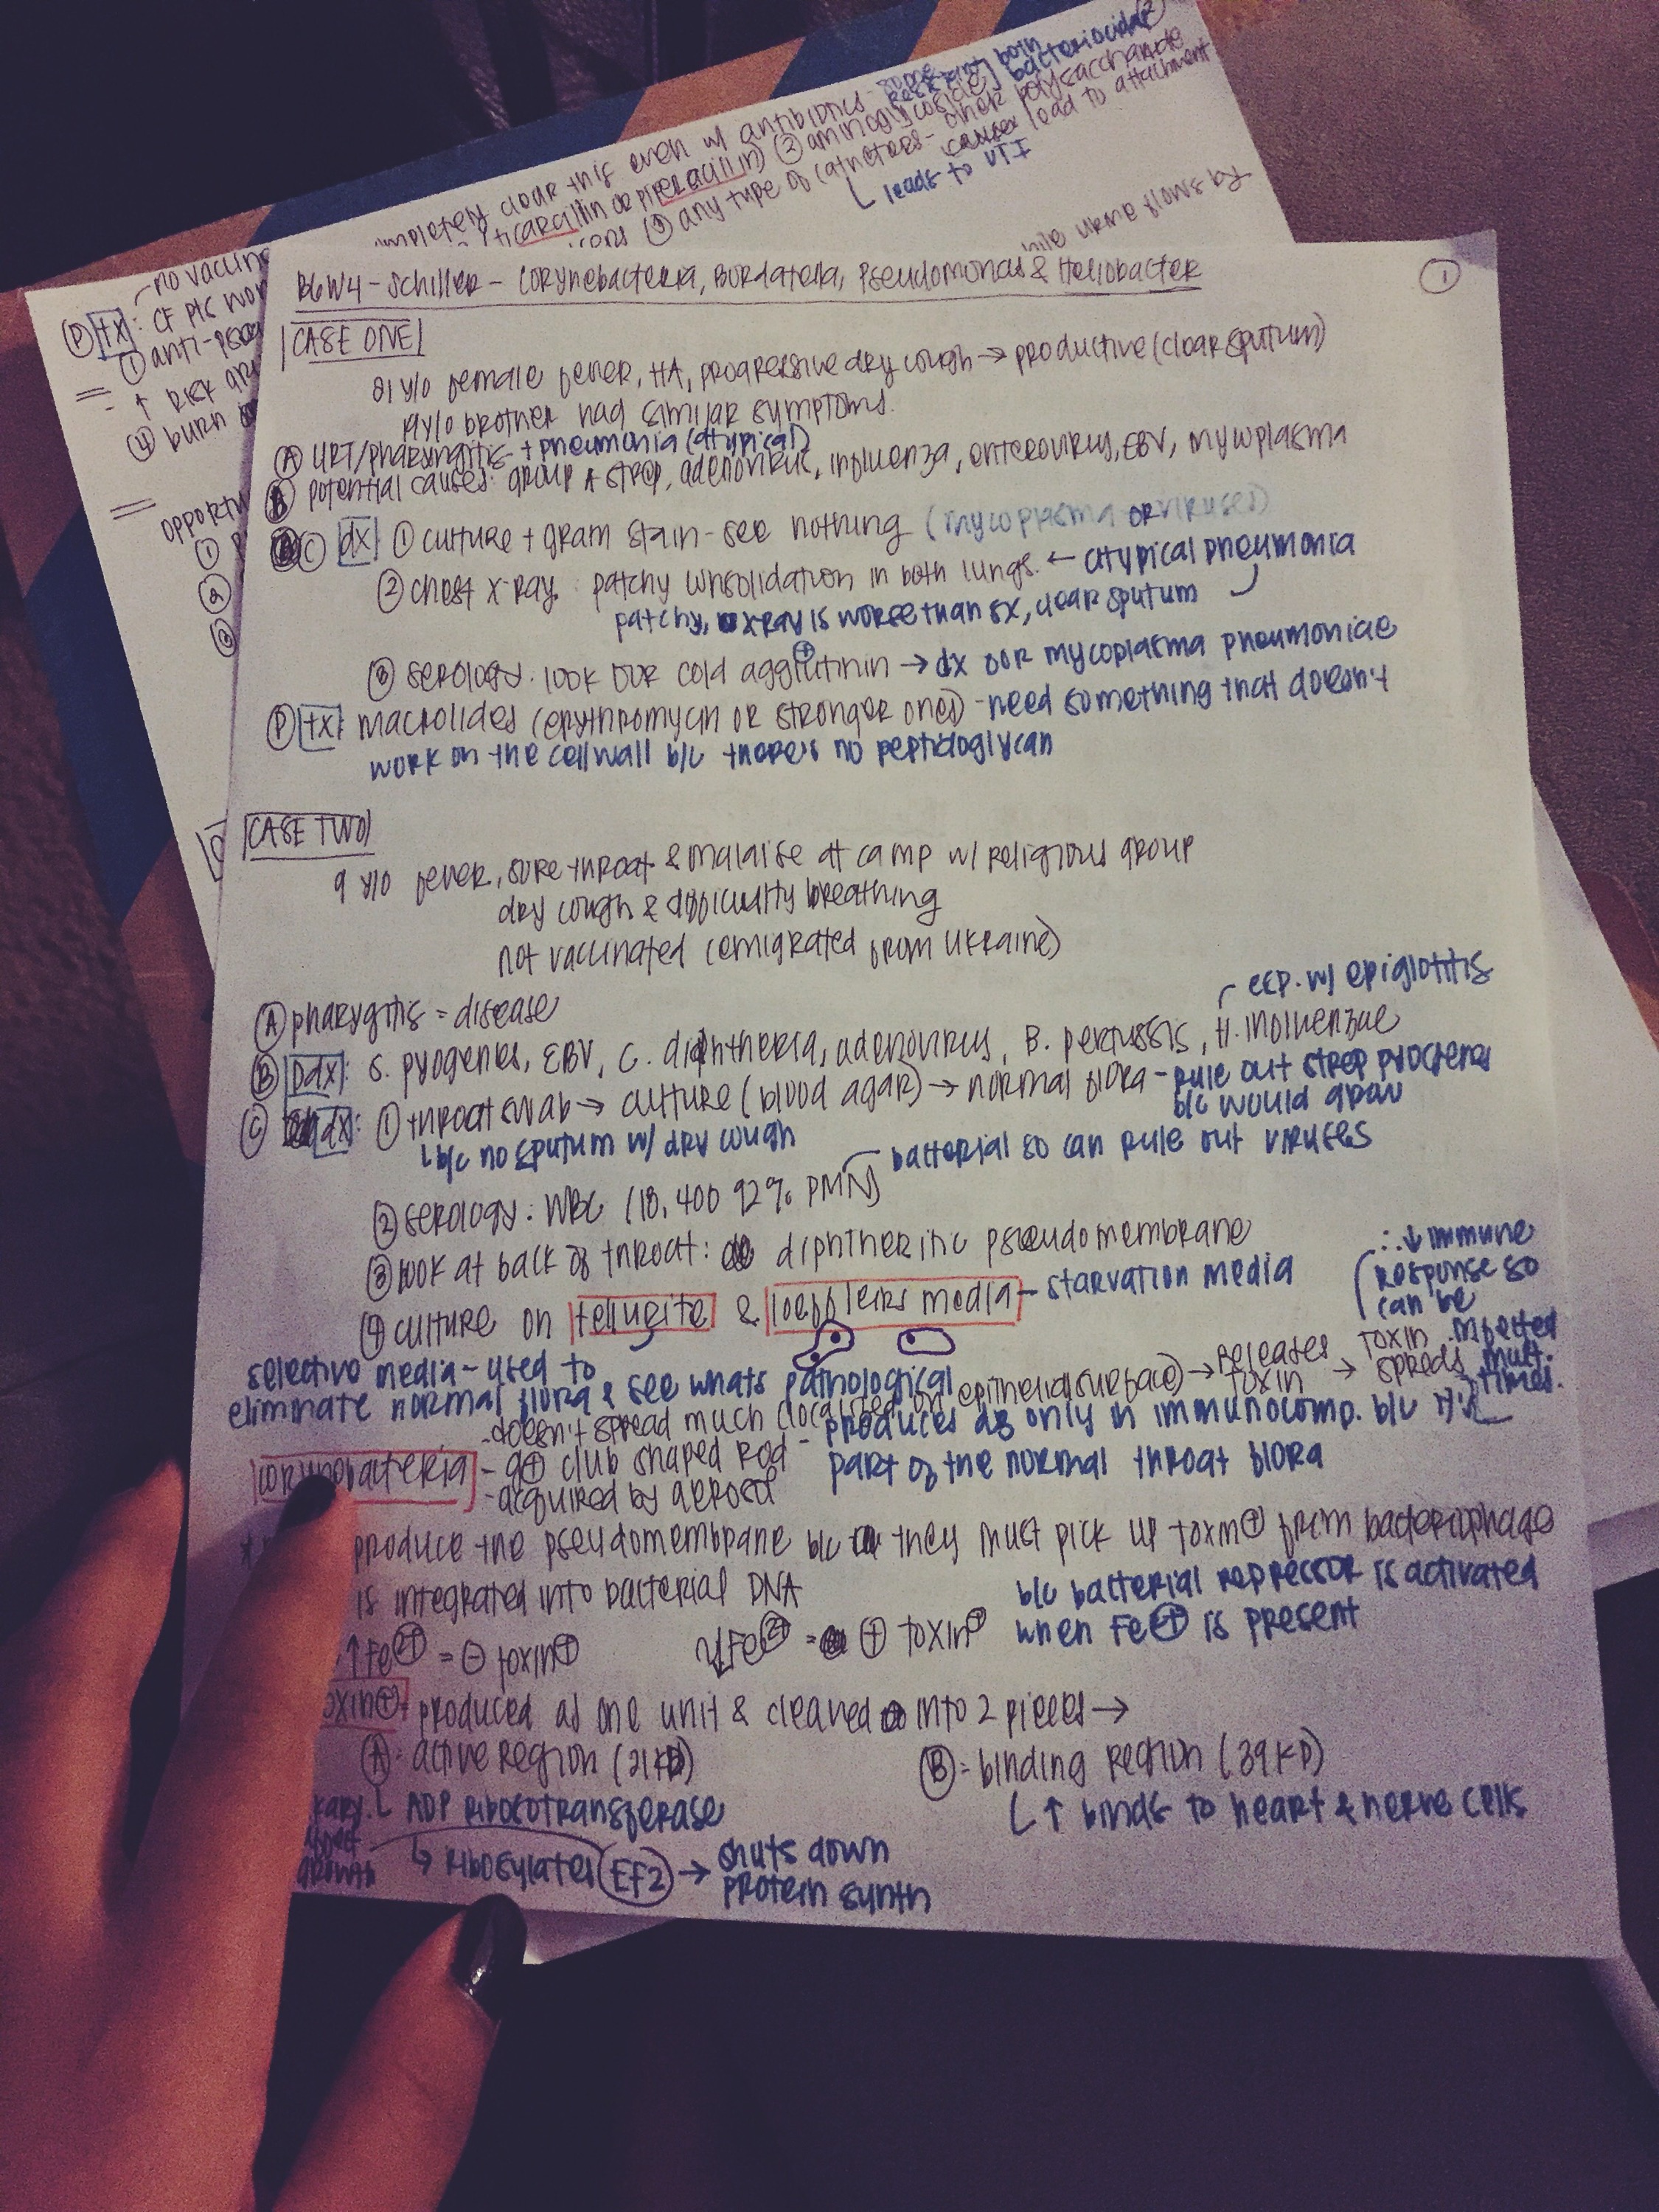 completely clear this even w/ antibiotics - some resistant both
ticarcillin or piperacillin) ② aminoglycoside] bacteriocidal ②
③ any type of catheters - other polysaccharide
causes lead to attachment
leads to UTI
while urine flows by
no vaccine
Ⓓ tx: CF pts wor
① anti-pseu
↑ risk gr
④ burn
opportu
①
②
③
B6W4 - Schiller - Corynebacteria, Bordatella, Pseudomonas & Heliobacter
①
CASE ONE
21 y/o female fever, HA, progressive dry cough → productive (clear sputum)
19 y/o brother had similar symptoms.
Ⓐ URT/pharyngitis + pneumonia (atypical)
Ⓑ potential causes: group A strep, adenovirus, influenza, enterovirus, EBV, mycoplasma
Ⓒ dx: ① culture + gram stain - see nothing (mycoplasma or viruses)
② chest x-ray: patchy consolidation in both lungs. ← atypical pneumonia
patchy, x-ray is worse than sx, clear sputum
③ serology: look for cold agglutinin ⊕ → dx for mycoplasma pneumoniae
Ⓓ tx: macrolides (erythromycin or stronger ones) - need something that doesn't
work on the cell wall b/c there's no peptidoglycan
CASE TWO
9 y/o fever, sore throat & malaise at camp w/ religious group
dry cough & difficulty breathing
not vaccinated (emigrated from Ukraine)
esp. w/ epiglottitis
Ⓐ pharygitis = disease
Ⓑ Ddx: S. pyogenes, EBV, C. diphtheria, adenovirus, B. pertussis, H. influenzae
Ⓒ dx: ① throat swab → culture (blood agar) → normal flora - rule out strep pyogenes
b/c would grow
b/c no sputum w/ dry cough
bacterial so can rule out viruses
② serology: WBC (18,400 92% PMN)
③ look at back of throat: diphtheritic pseudomembrane
④ culture on tellurite & loefflers media - starvation media
∴ ↓ immune
response so
can be
infected
mult.
times.
selective media - used to
eliminate normal flora & see whats pathological
- doesn't spread much (localized on epithelial surface) → releases toxin → toxin spreads
corynebacteria - g⊕ club shaped rod - produces dz only in immunocomp. b/c it's
part of the normal throat flora
- acquired by aerosol
produce the pseudomembrane b/c they must pick up toxin⊕ from bacteriophage
is integrated into bacterial DNA
b/c bacterial repressor is activated
when Fe2+ is present
↑Fe2+ = ⊖ toxin⊕
↓Fe2+ = ⊕ toxin⊕
toxin⊕ produced as one unit & cleaved into 2 pieces →
Ⓐ = active region (21 kD)
Ⓑ = binding region (39 kD)
ADP ribosotransferase
↑ binds to heart & nerve cells
growth
↳ ribosylates EF2 → shuts down
protein synth